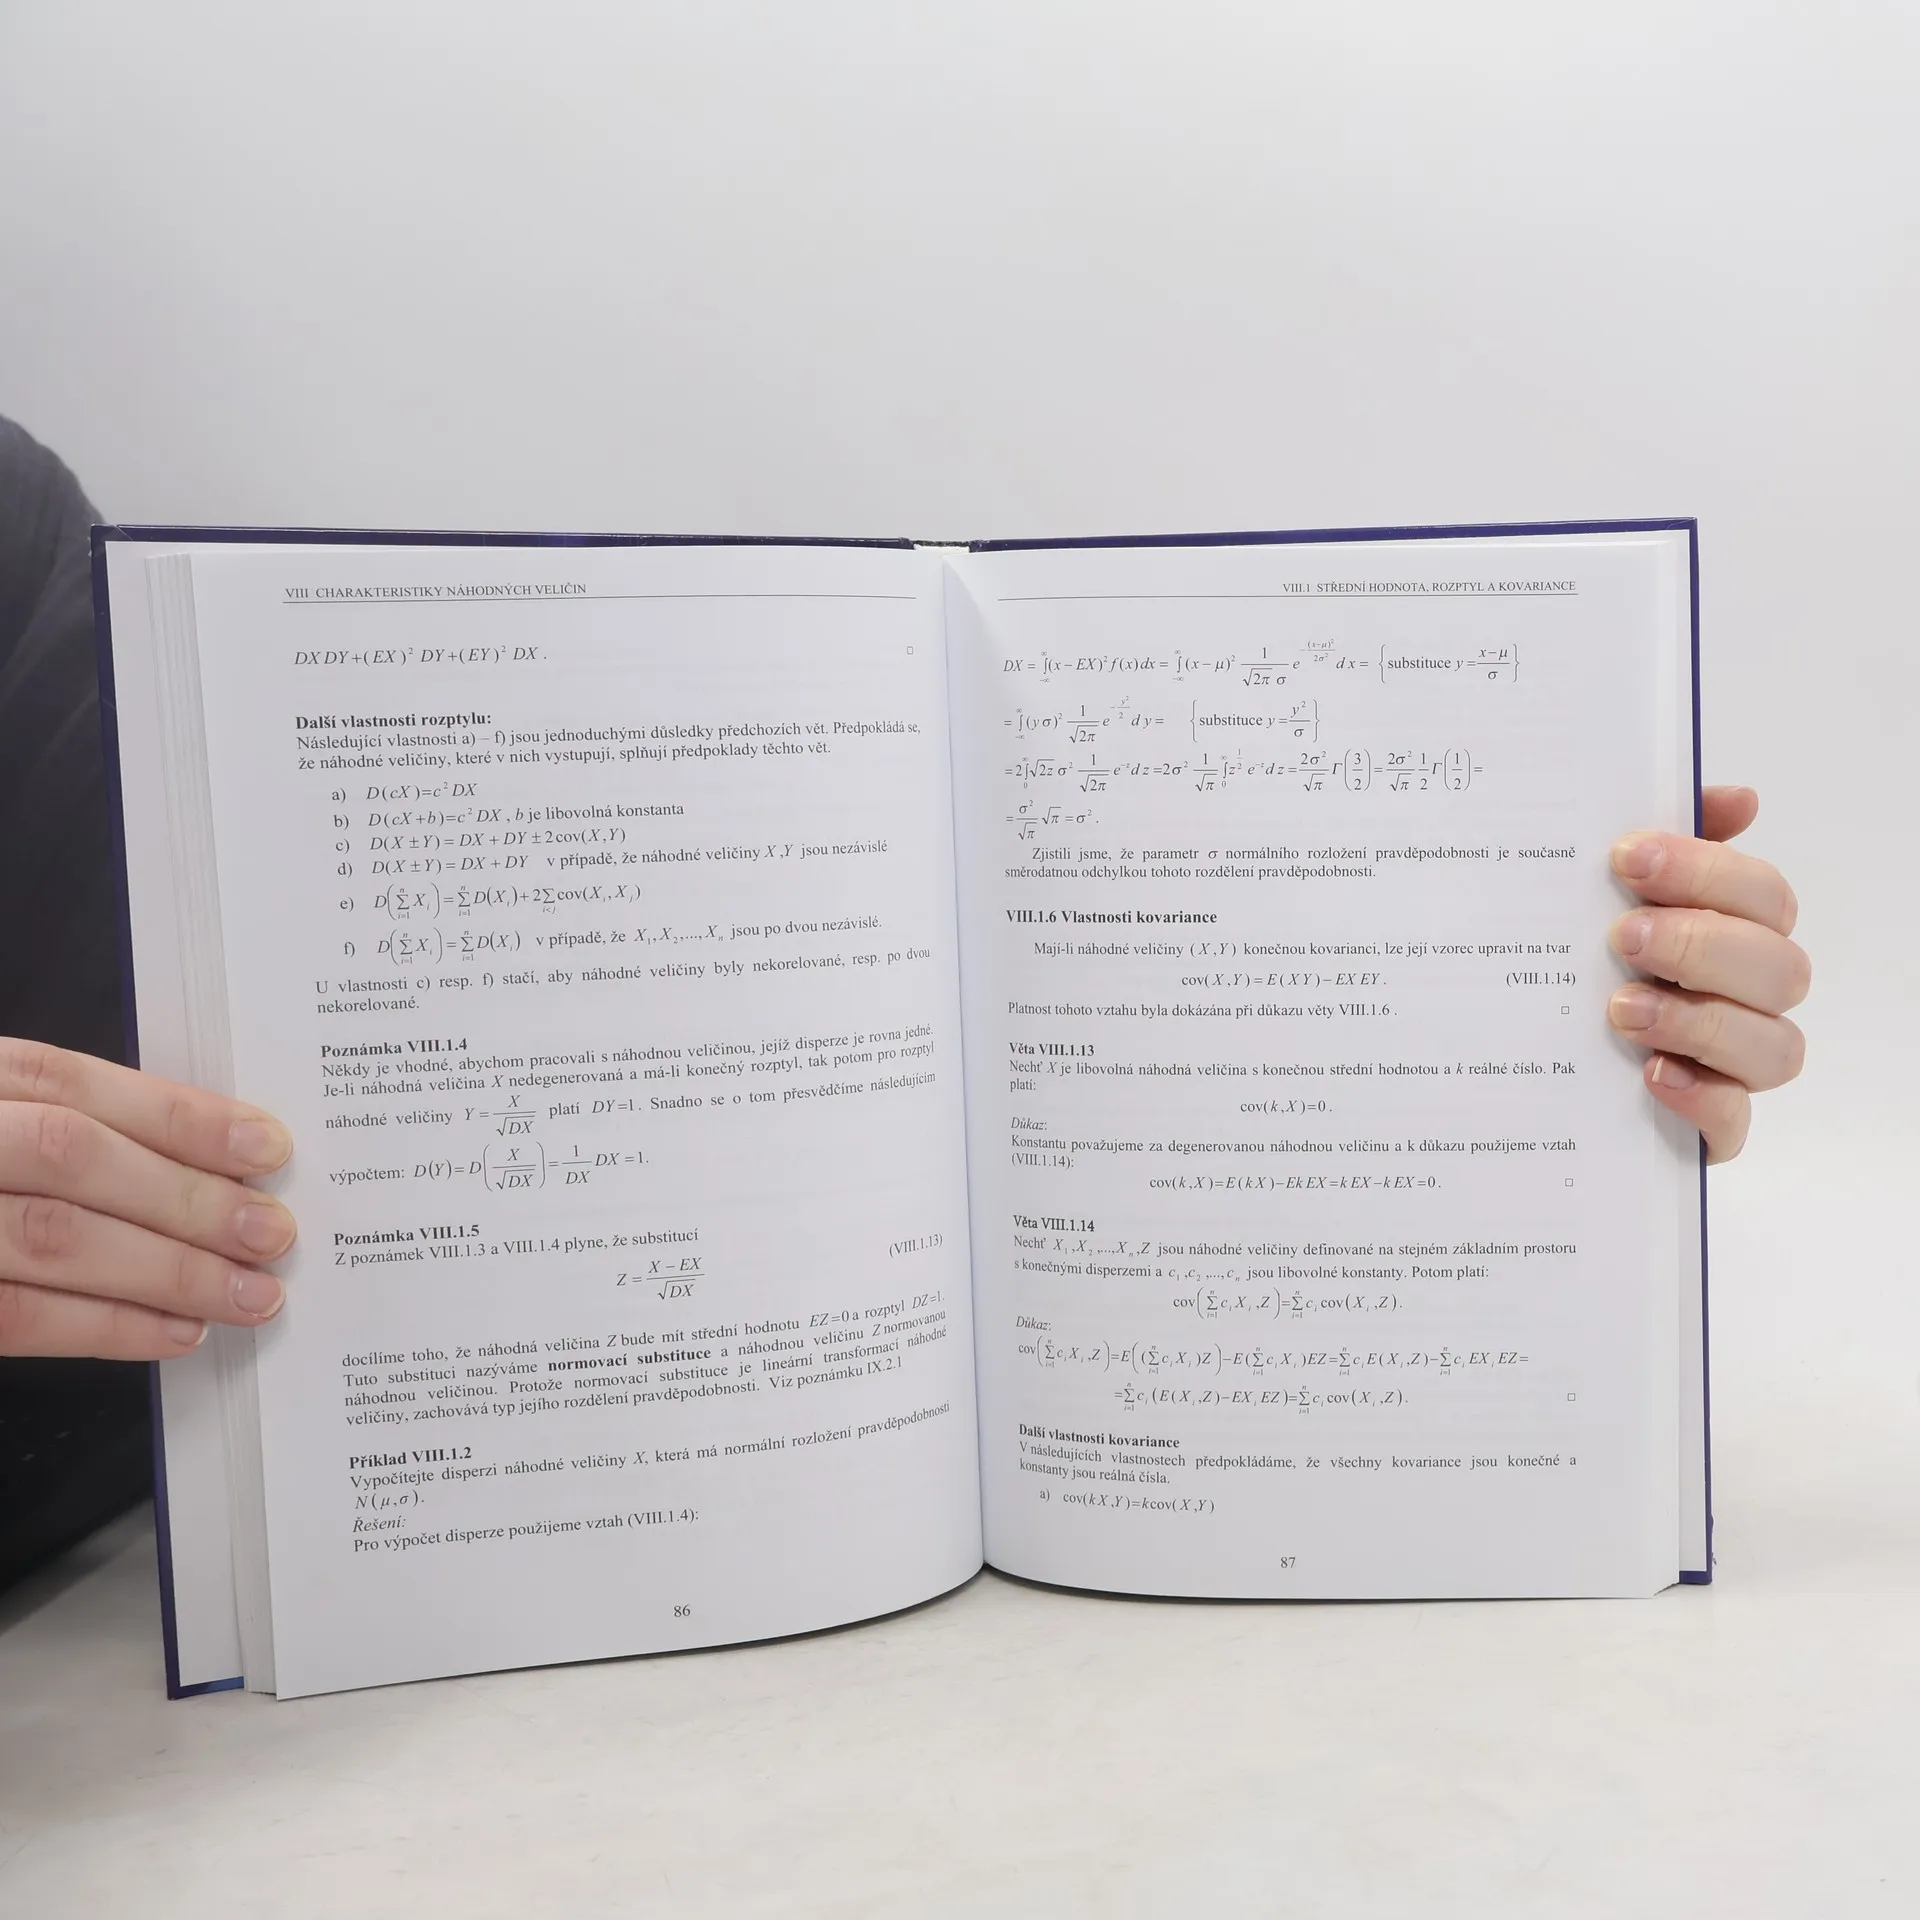 VIII CHARAKTERISTIKY NÁHODNÝCH VELIČIN
DX DY+(EX)² DY+(EY)² DX. □
Další vlastnosti rozptylu:
Následující vlastnosti a) – f) jsou jednoduchými důsledky předchozích vět. Předpokládá se,
že náhodné veličiny, které v nich vystupují, splňují předpoklady těchto vět.
a) D(cX)=c² DX
b) D(cX+b)=c² DX, b je libovolná konstanta
c) D(X±Y)=DX+DY±2cov(X,Y)
d) D(X±Y)=DX+DY v případě, že náhodné veličiny X,Y jsou nezávislé
e) D(∑_{i=1}^{n} X_i)=∑_{i=1}^{n} D(X_i)+2∑_{i<j} cov(X_i,X_j)
f) D(∑_{i=1}^{n} X_i)=∑_{i=1}^{n} D(X_i) v případě, že X₁,X₂,...,X_n jsou po dvou nezávislé.
U vlastnosti c) resp. f) stačí, aby náhodné veličiny byly nekorelované, resp. po dvou
nekorelované.
Poznámka VIII.1.4
Někdy je vhodné, abychom pracovali s náhodnou veličinou, jejíž disperze je rovna jedné.
Je-li náhodná veličina X nedegenerovaná a má-li konečný rozptyl, tak potom pro rozptyl
náhodné veličiny Y=X/√DX platí DY=1. Snadno se o tom přesvědčíme následujícím
výpočtem: D(Y)=D(X/√DX)=1/DX DX=1.
Poznámka VIII.1.5
Z poznámek VIII.1.3 a VIII.1.4 plyne, že substitucí
Z=(X−EX)/√DX (VIII.1.13)
docílíme toho, že náhodná veličina Z bude mít střední hodnotu EZ=0 a rozptyl DZ=1.
Tuto substituci nazýváme normovací substituce a náhodnou veličinu Z normovanou
náhodnou veličinou. Protože normovací substituce je lineární transformací náhodné
veličiny, zachovává typ jejího rozdělení pravděpodobnosti. Viz poznámku IX.2.1
Příklad VIII.1.2
Vypočítejte disperzi náhodné veličiny X, která má normální rozložení pravděpodobnosti
N(μ,σ).
Řešení:
Pro výpočet disperze použijeme vztah (VIII.1.4):
86
VIII.1 STŘEDNÍ HODNOTA, ROZPTYL A KOVARIANCE
DX = ∫_{−∞}^{∞}(x−EX)² f(x)dx = ∫_{−∞}^{∞}(x−μ)² 1/(√2π σ) e^{−(x−μ)²/2σ²} dx = {substituce y=(x−μ)/σ}
= ∫_{−∞}^{∞}(yσ)² 1/√2π e^{−y²/2} dy = {substituce y=y²/σ}
=2∫_{0}^{∞}√2z σ² 1/√2π e^{−z} dz=2σ² 1/√π ∫_{0}^{∞} z^{1/2} e^{−z} dz=2σ²/√π Γ(3/2)=2σ²/√π 1/2 Γ(1/2)=
=σ²/√π √π=σ².
Zjistili jsme, že parametr σ normálního rozložení pravděpodobnosti je současně
směrodatnou odchylkou tohoto rozdělení pravděpodobnosti.
VIII.1.6 Vlastnosti kovariance
Mají-li náhodné veličiny (X,Y) konečnou kovarianci, lze její vzorec upravit na tvar
cov(X,Y)=E(XY)−EX EY. (VIII.1.14)
Platnost tohoto vztahu byla dokázána při důkazu věty VIII.1.6. □
Věta VIII.1.13
Nechť X je libovolná náhodná veličina s konečnou střední hodnotou a k reálné číslo. Pak
platí:
cov(k,X)=0.
Důkaz:
Konstantu považujeme za degenerovanou náhodnou veličinu a k důkazu použijeme vztah
(VIII.1.14):
cov(k,X)=E(kX)−Ek EX=k EX−k EX=0. □
Věta VIII.1.14
Nechť X₁,X₂,...,X_n,Z jsou náhodné veličiny definované na stejném základním prostoru
s konečnými disperzemi a c₁,c₂,...,c_n jsou libovolné konstanty. Potom platí:
cov(∑_{i=1}^{n} c_i X_i,Z)=∑_{i=1}^{n} c_i cov(X_i,Z).
Důkaz:
cov(∑_{i=1}^{n} c_i X_i,Z)=E((∑_{i=1}^{n} c_i X_i)Z)−E(∑_{i=1}^{n} c_i X_i)EZ=∑_{i=1}^{n} c_i E(X_i,Z)−∑_{i=1}^{n} c_i EX_i EZ=
=∑_{i=1}^{n} c_i (E(X_i,Z)−EX_i EZ)=∑_{i=1}^{n} c_i cov(X_i,Z). □
Další vlastnosti kovariance
V následujících vlastnostech předpokládáme, že všechny kovariance jsou konečné a
konstanty jsou reálná čísla.
a) cov(kX,Y)=kcov(X,Y)
87